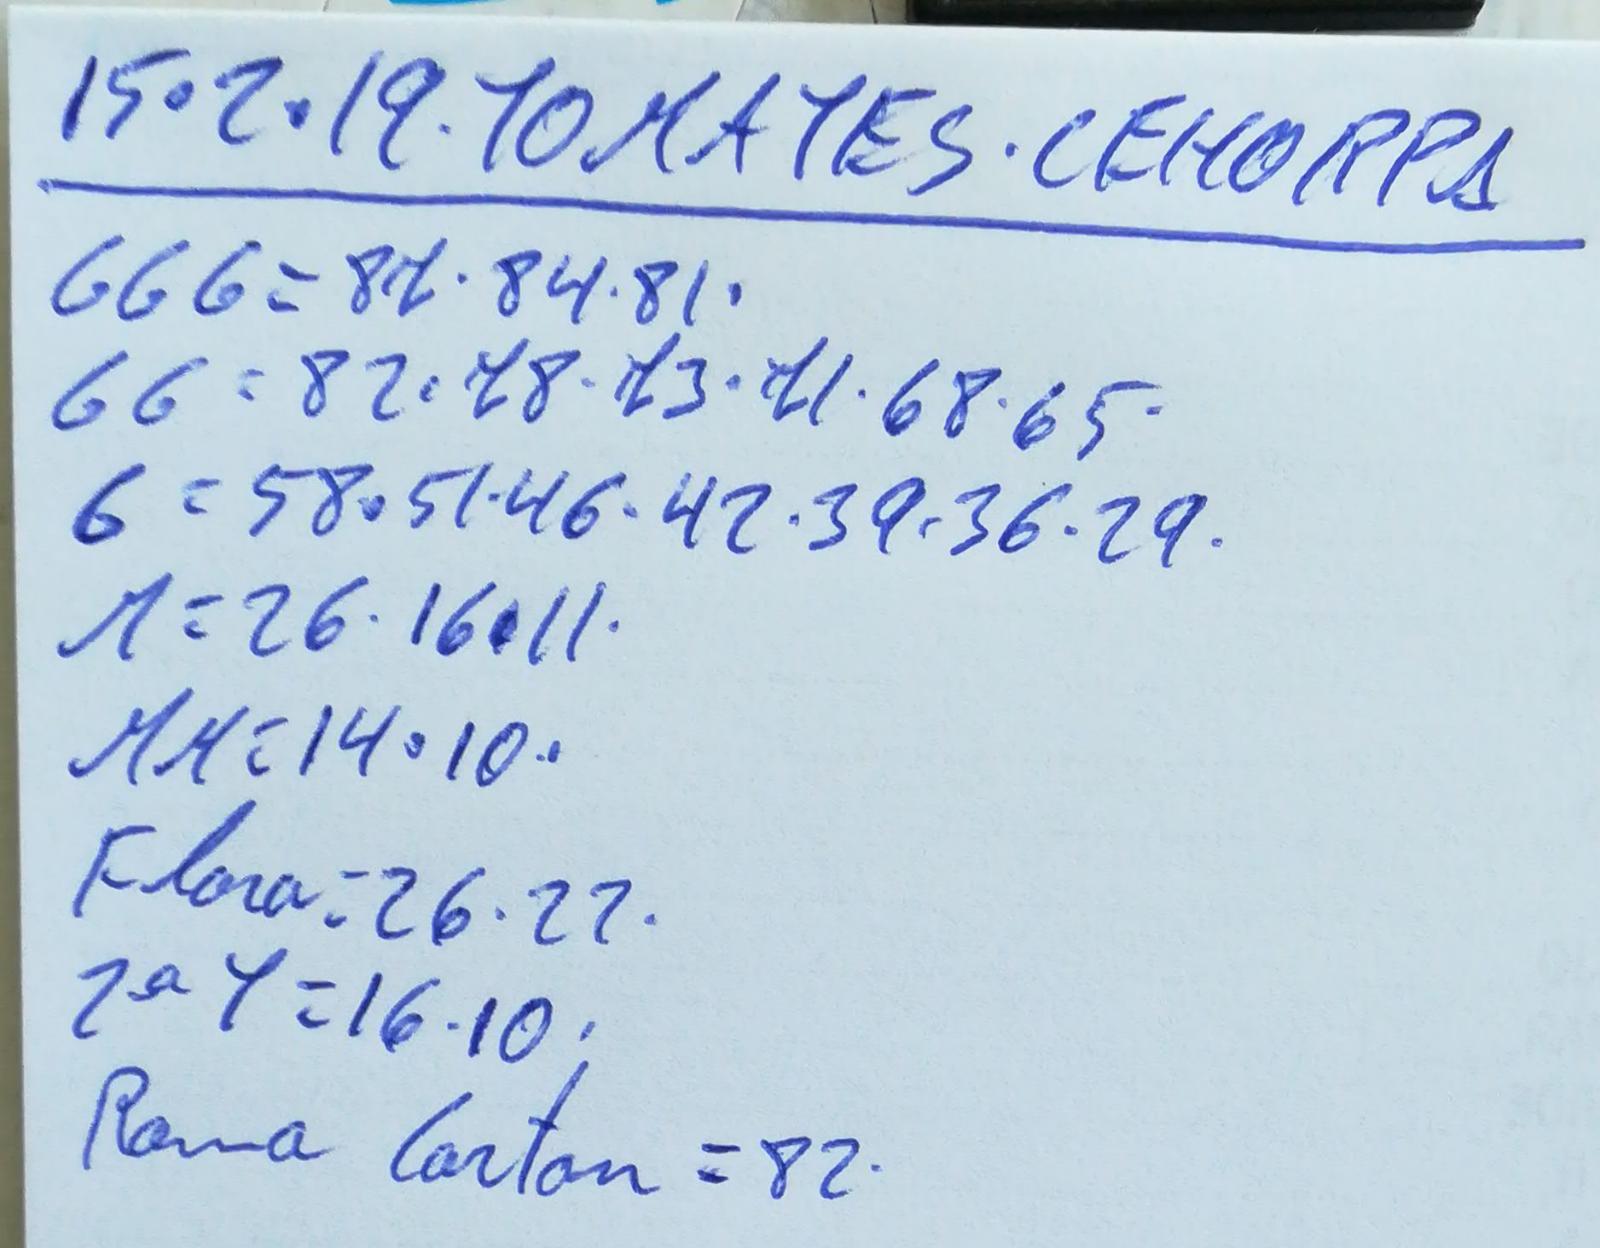 15.2.19. TOMATES. CEHORPA
GGG = 87. 84. 81.
GG = 82. 78. 73. 71. 68. 65.
G = 58. 51. 46. 42. 39. 36. 29.
M = 26. 16. 11.
MM = 14. 10.
Flora = 26. 22.
2ª Y = 16. 10.
Rama Carton = 82.